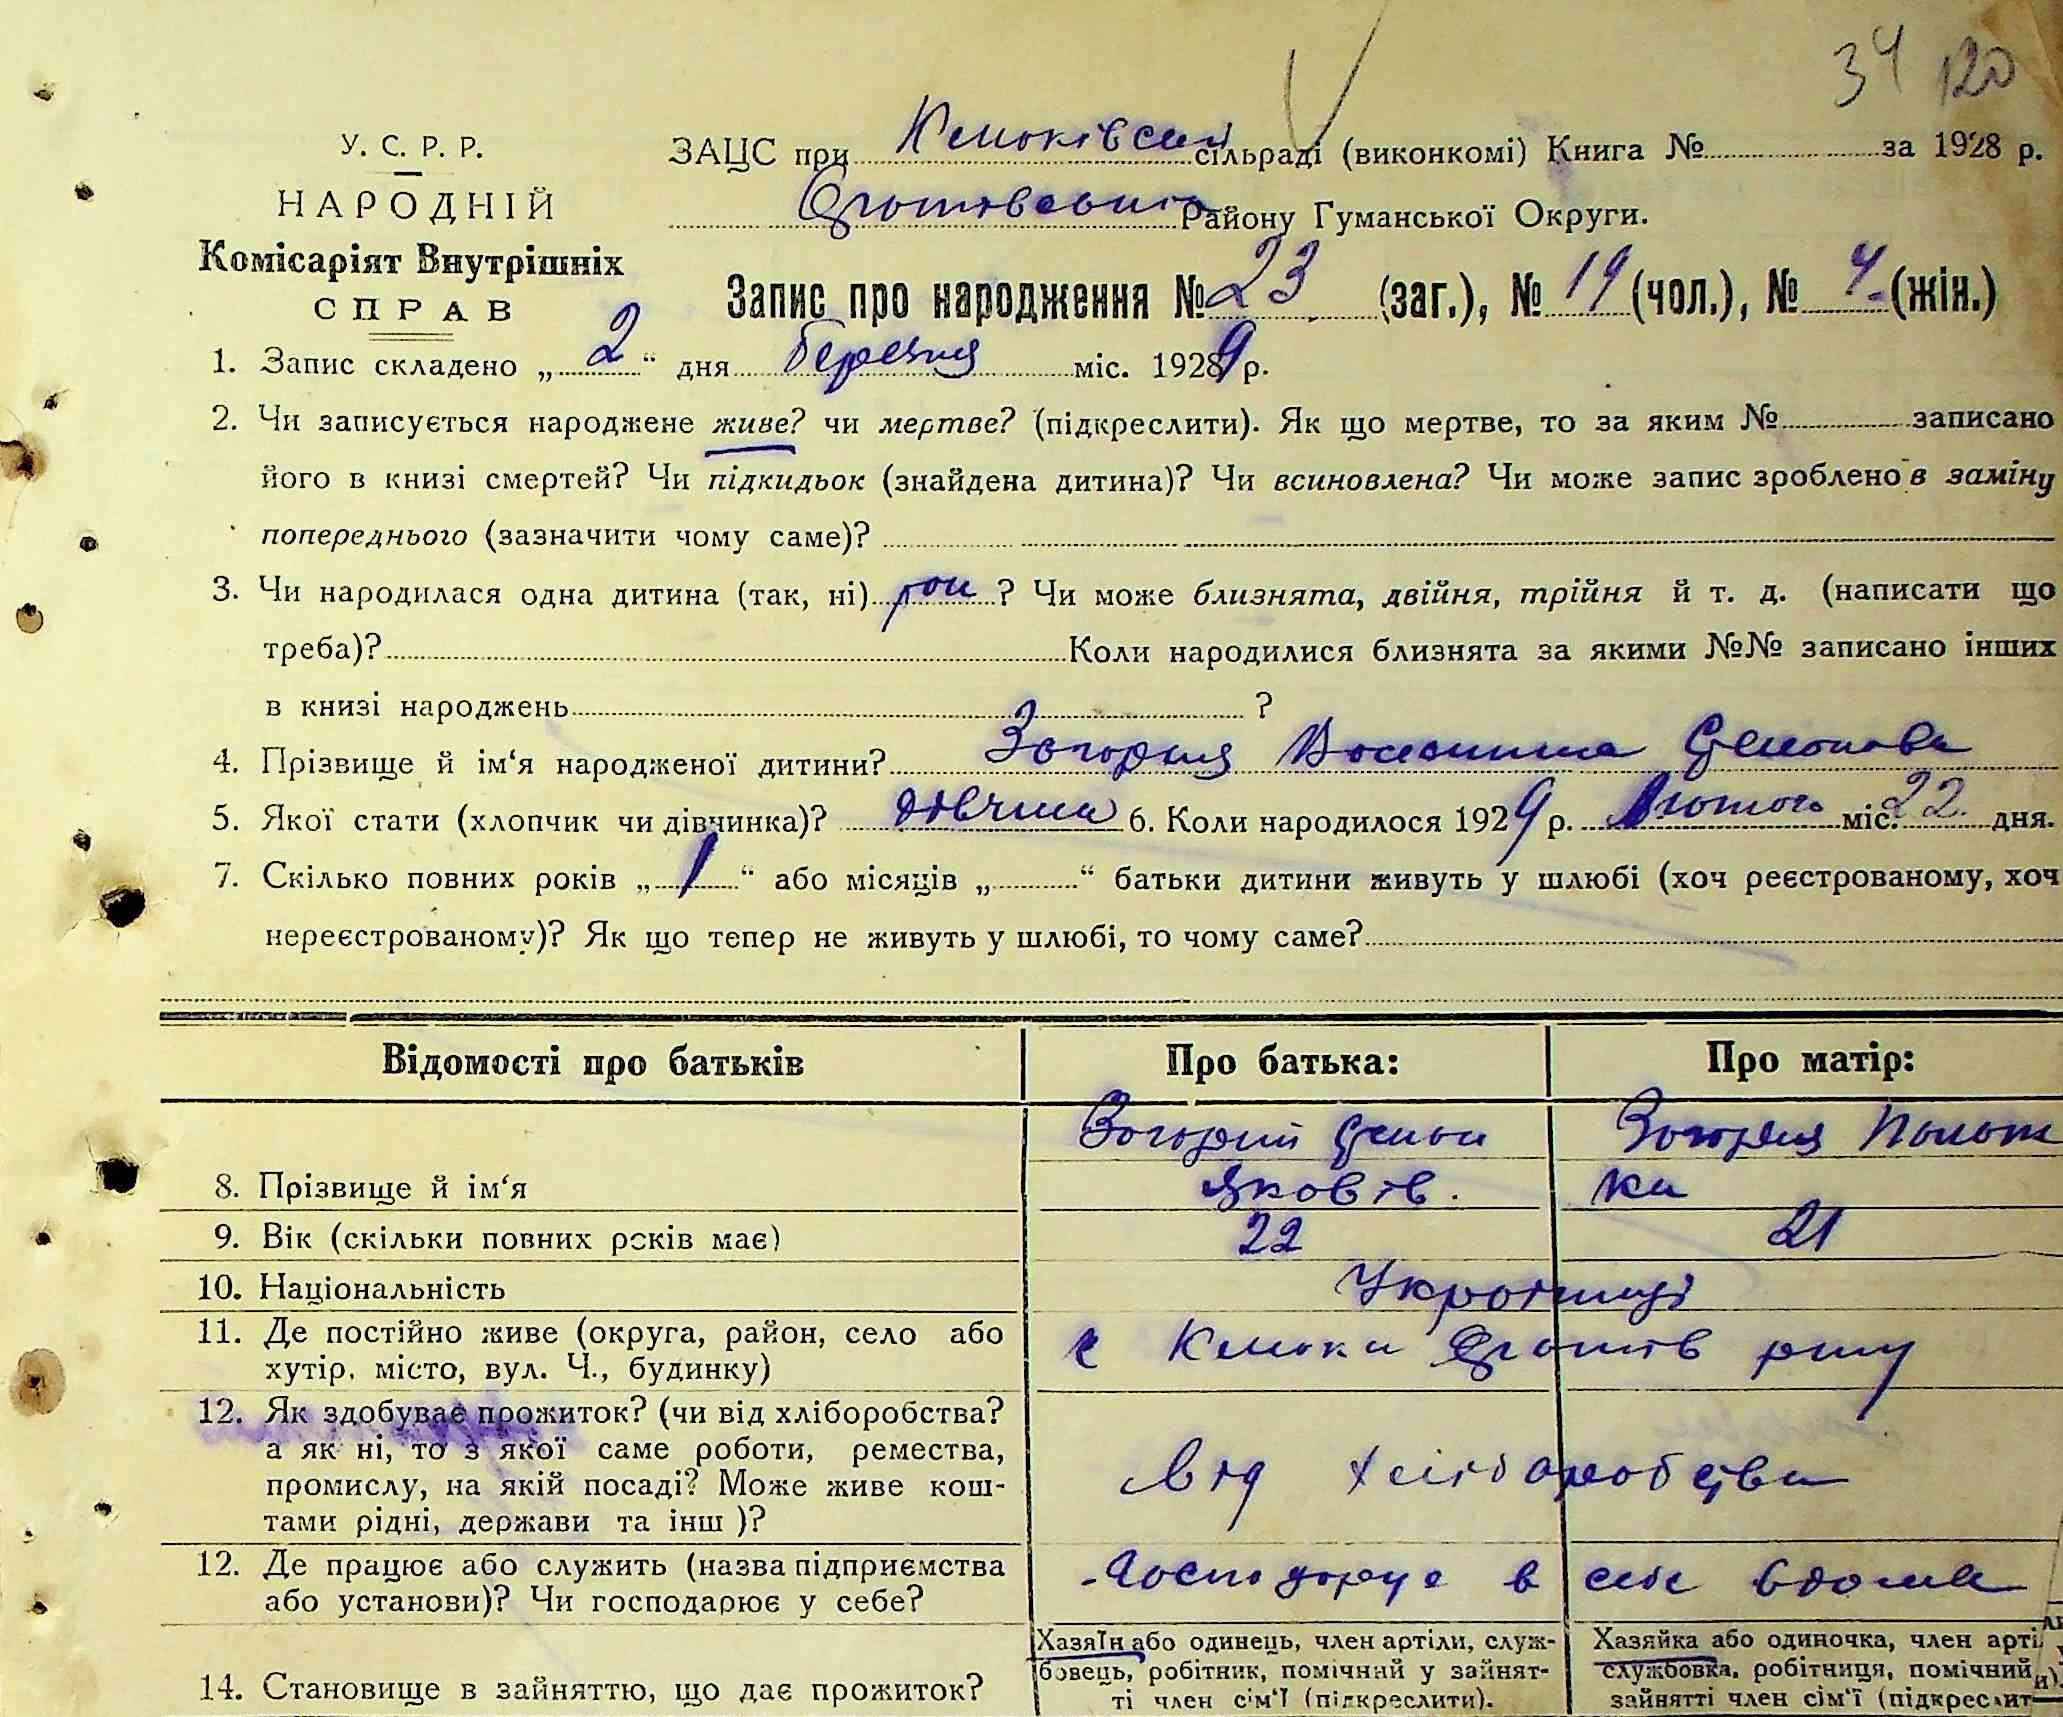 34 120
У. С. Р. Р.
НАРОДНІЙ
Комісаріят Внутрішніх
СПРАВ
ЗАЦС при сільраді (виконкомі) Книга № за 1928 р.
Району Гуманської Округи.
Запис про народження № 23 (заг.), № 19 (чол.), № 4 (жін.)
1. Запис складено „ 2 “ дня березня міс. 1929 р.
2. Чи записується народжене живе? чи мертве? (підкреслити). Як що мертве, то за яким № записано
його в книзі смертей? Чи підкидьок (знайдена дитина)? Чи всиновлена? Чи може запис зроблено в заміну
попереднього (зазначити чому саме)?
3. Чи народилася одна дитина (так, ні) ? Чи може близнята, двійня, трійня й т. д. (написати що
треба)? Коли народилися близнята за якими №№ записано інших
в книзі народжень ?
4. Прізвище й ім‘я народженої дитини? Загорня
5. Якої стати (хлопчик чи дівчинка)? дівчина 6. Коли народилося 1929 р. Лютого міс. 22 дня.
7. Скілько повних років „ 1 “ або місяців „ “ батьки дитини живуть у шлюбі (хоч реєстрованому, хоч
нереєстрованому)? Як що тепер не живуть у шлюбі, то чому саме?
Відомості про батьків Про батька: Про матір:
8. Прізвище й ім‘я Загорній Семен Яковів. Загорня Палажка
9. Вік (скільки повних років має) 22 21
10. Національність Українці
11. Де постійно живе (округа, район, село або
хутір, місто, вул. Ч., будинку)
с рну
12. Як здобуває прожиток? (чи від хліборобства?
а як ні, то з якої саме роботи, ремества,
промислу, на якій посаді? Може живе кош-
тами рідні, держави та інш )?
Від хліборобства
12. Де працює або служить (назва підприємства
або установи)? Чи господарює у себе?
Господарує в себе вдома
14. Становище в зайняттю, що дає прожиток?
Хазяїн або одинець, член артіли, служ-
бовець, робітник, помічний у зайнят-
ті член сім‘ї (підкреслити).
Хазяйка або одиночка, член арті
службовка, робітниця, помічний
зайнятті член сім‘ї (підкреслит